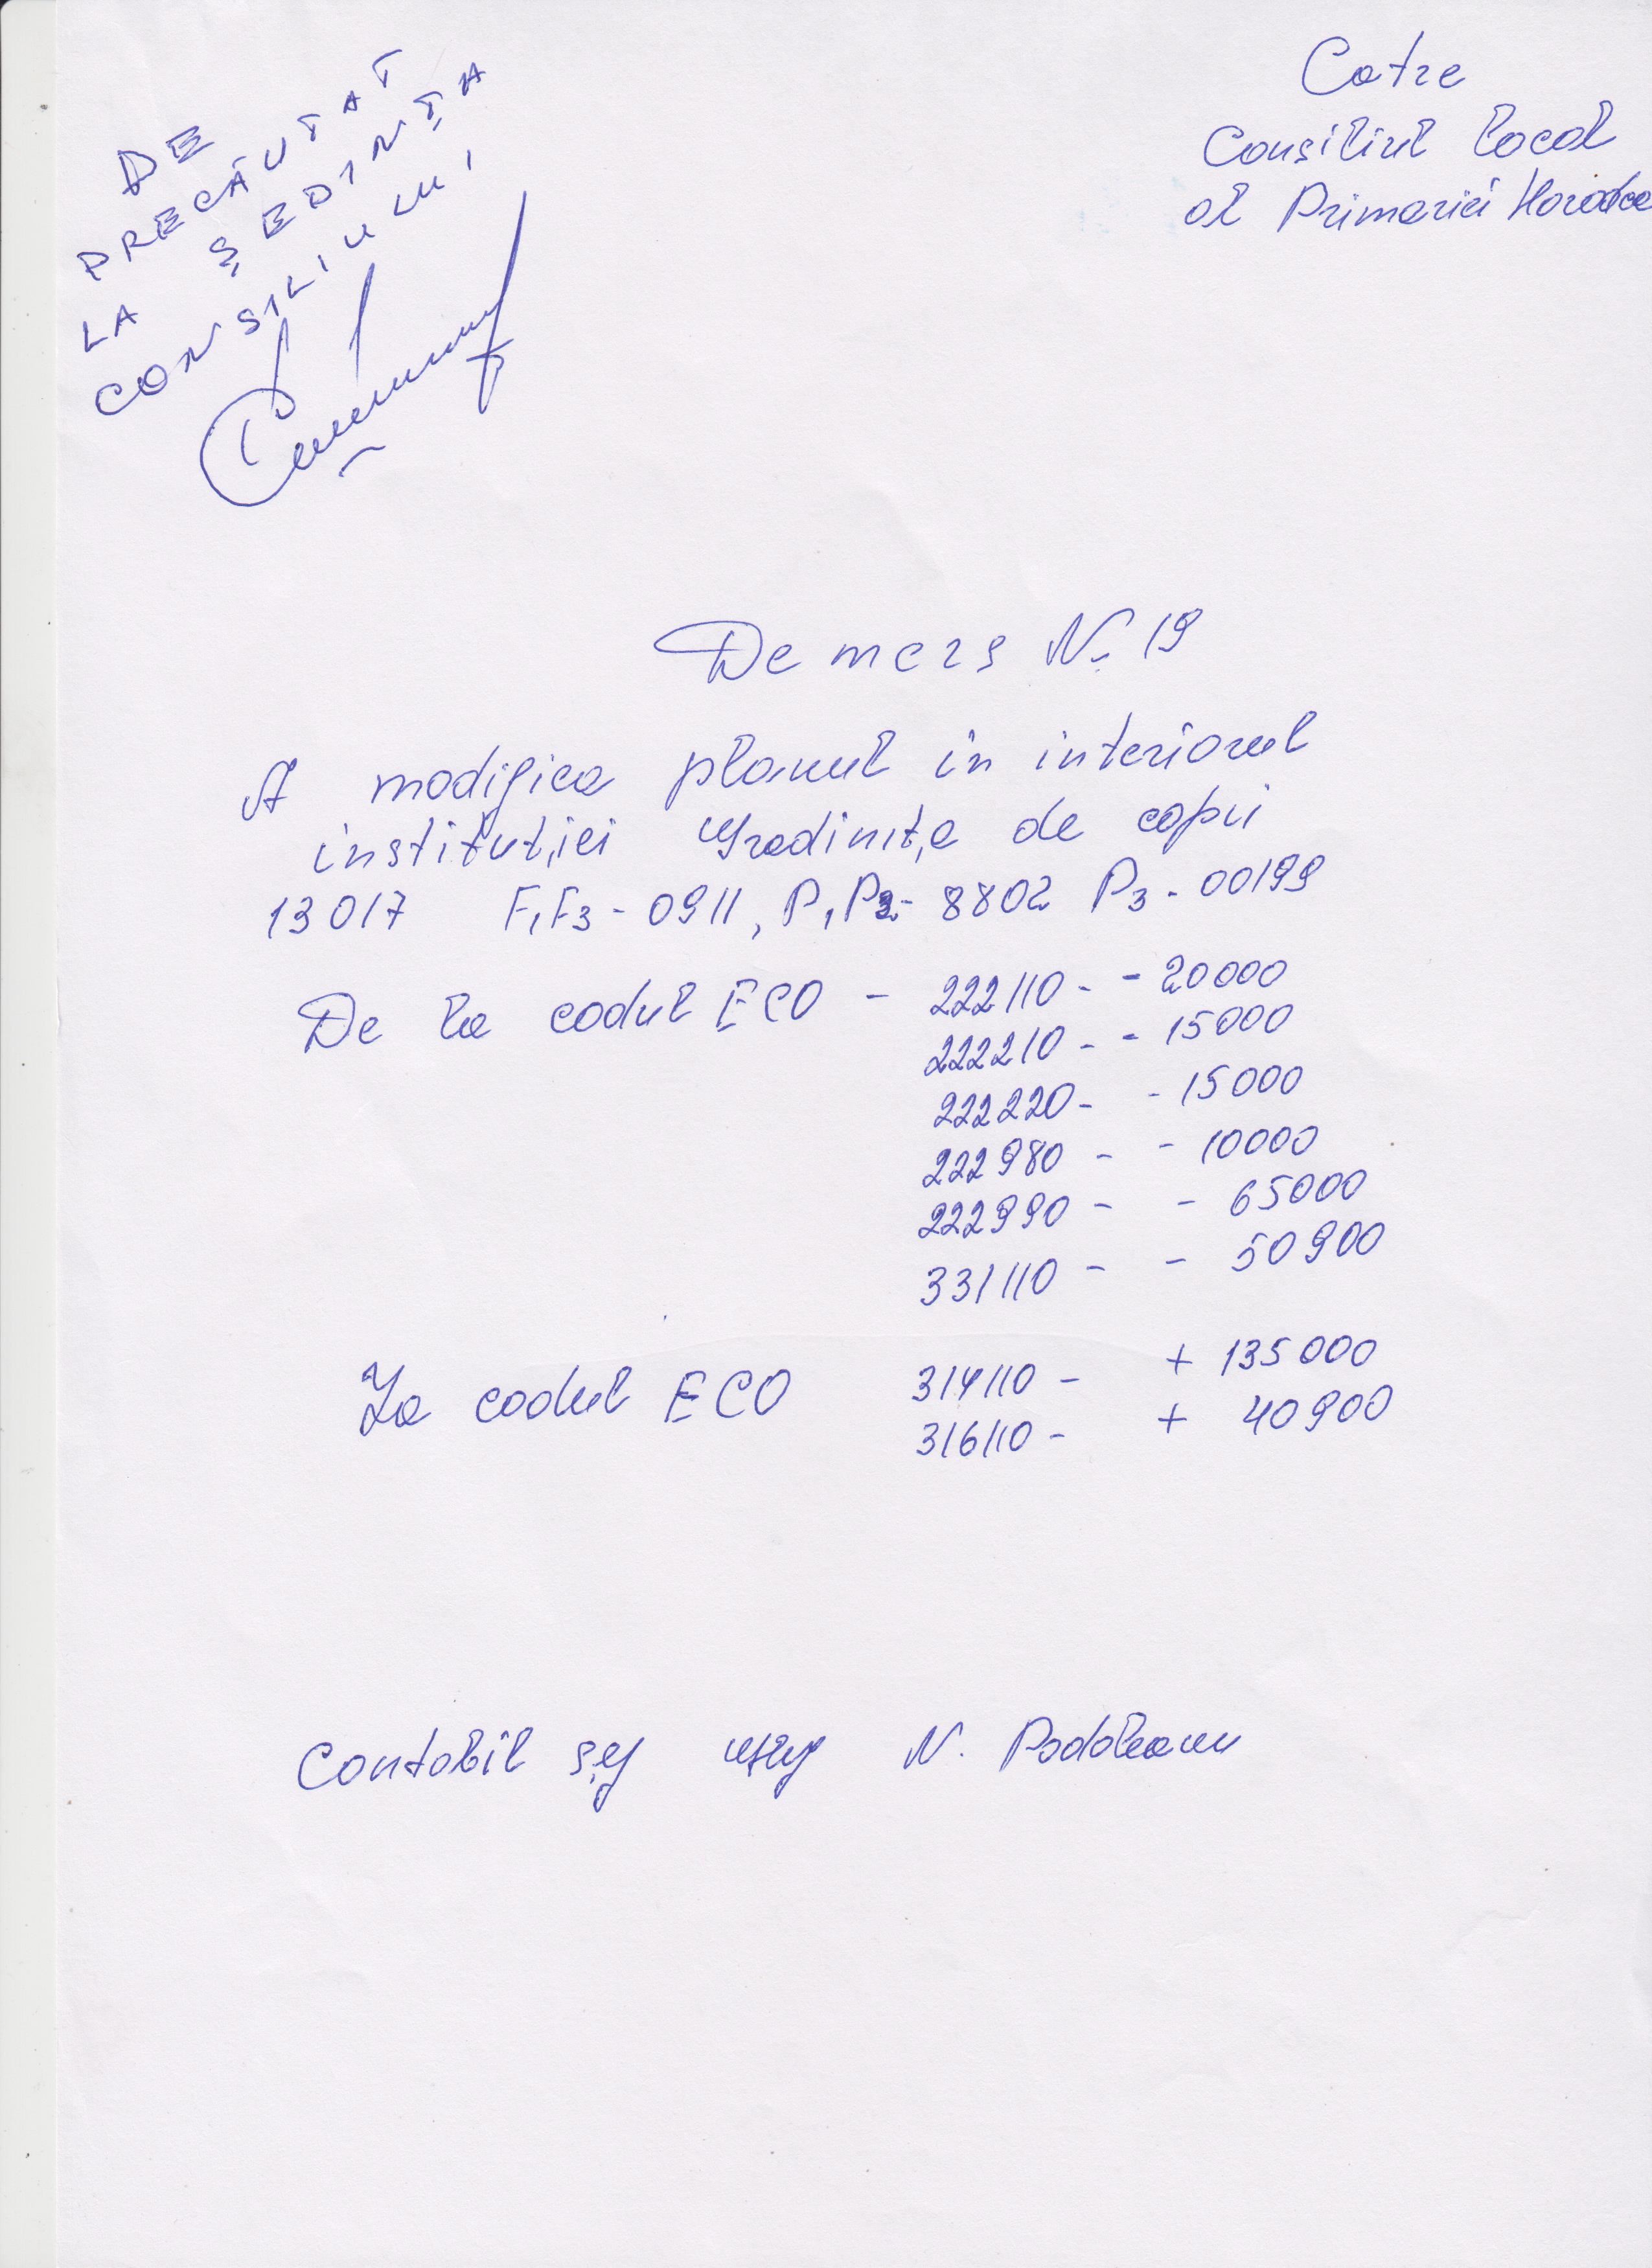 DE
PRECĂUTAT
LA ȘEDINȚA
CONSILIULUI
Catre
Consiliul local
al Primariei Horodca
Demers N. 19
A modifica planul in interiorul
instituției Gradinița de copii
13017 F1F3 - 0911, P1P2 - 8802 P3 - 00199
De la codul ECO - 222110 - - 20000
222210 - - 15000
222220 - - 15000
222980 - - 10000
222990 - - 65000
331110 - - 50900
La codul ECO 314110 - + 135000
316110 - + 40900
Contabil șef N. Podoleanu